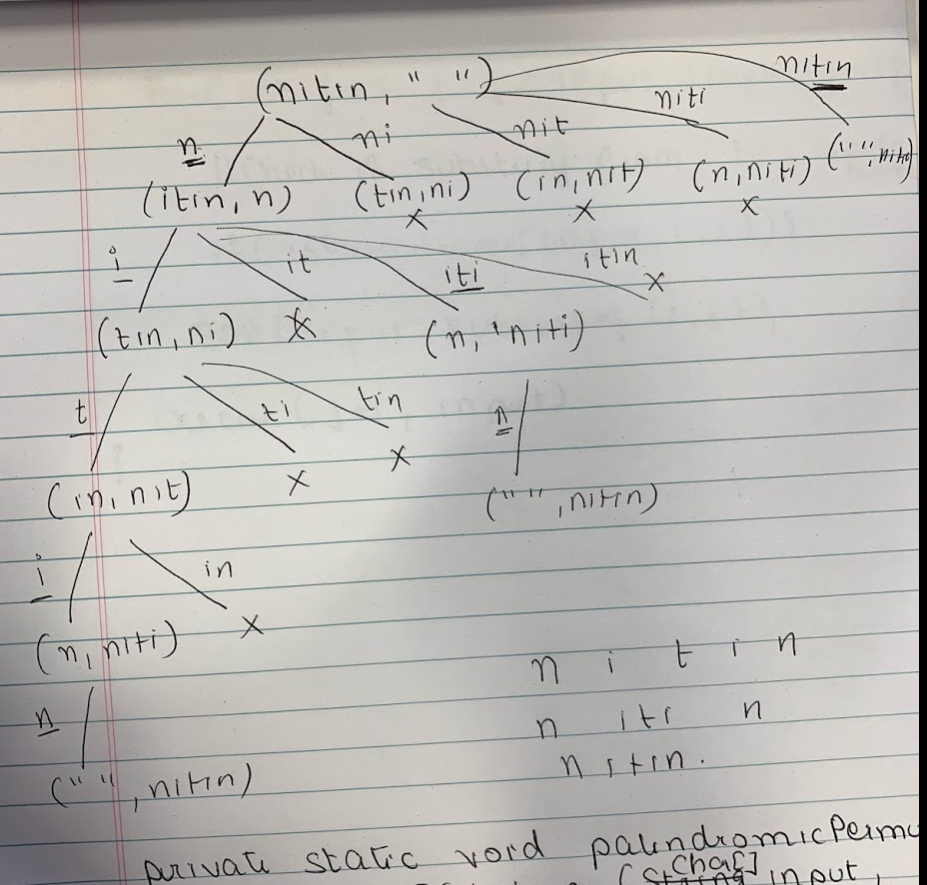 nitin
(nitin, " ")
niti
n
ni
nit
(itin, n)
(tin, ni)
(in, nit)
(n, niti)
x
x
x
i
it
iti
itin
x
(tin, ni)
x
(n, 'niti)
t
ti
tin
n
x
x
(in, nit)
(" ", nitin)
i
in
(n, niti)
x
n i t i n
n
n iti n
nitin.
(" ", nitin)
private static void
char[]
input,